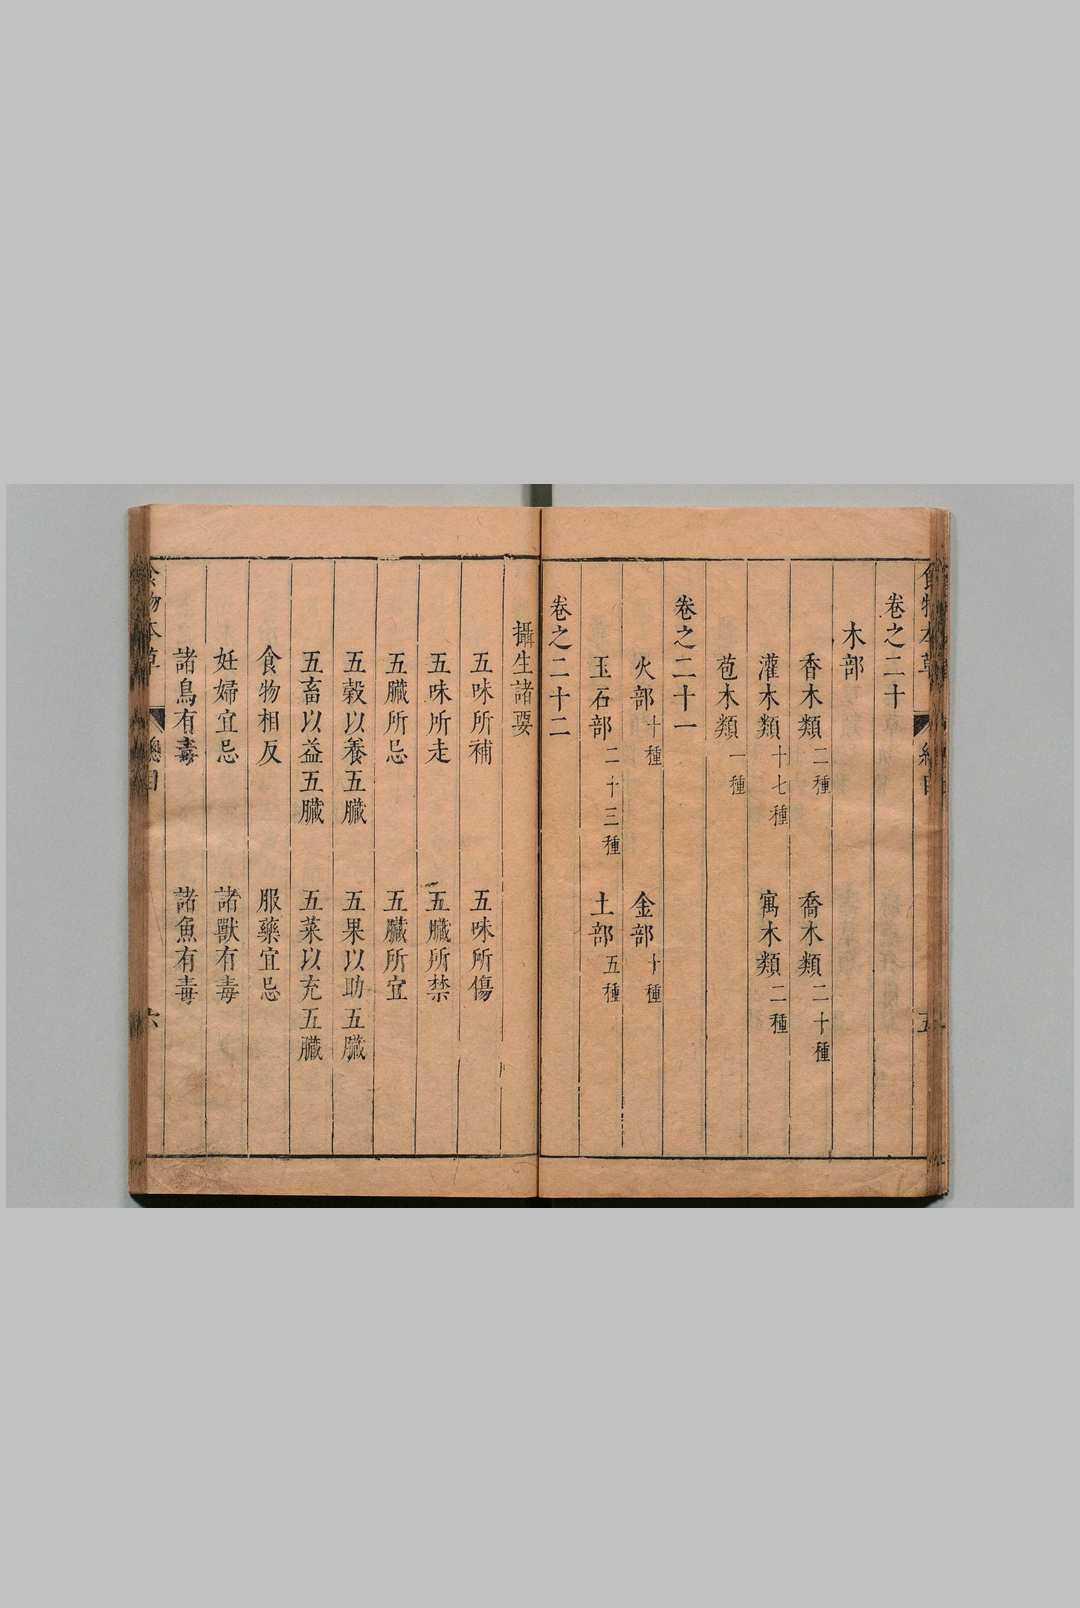 卷之二十
木部
香木類二種 喬木類二十種
灌木類十七種 寓木類二種
苞木類一種
卷之二十一
火部十種 金部十種
玉石部二十三種 土部五種
卷之二十二
攝生諸要
五味所補 五味所傷
五味所走 五臟所禁
五臟所忌 五臟所宜
五穀以養五臟 五果以助五臟
五畜以益五臟 五菜以充五臟
食物相反 服藥宜忌
妊婦宜忌 諸獸有毒
諸鳥有毒 諸魚有毒
食物本草 總目 六